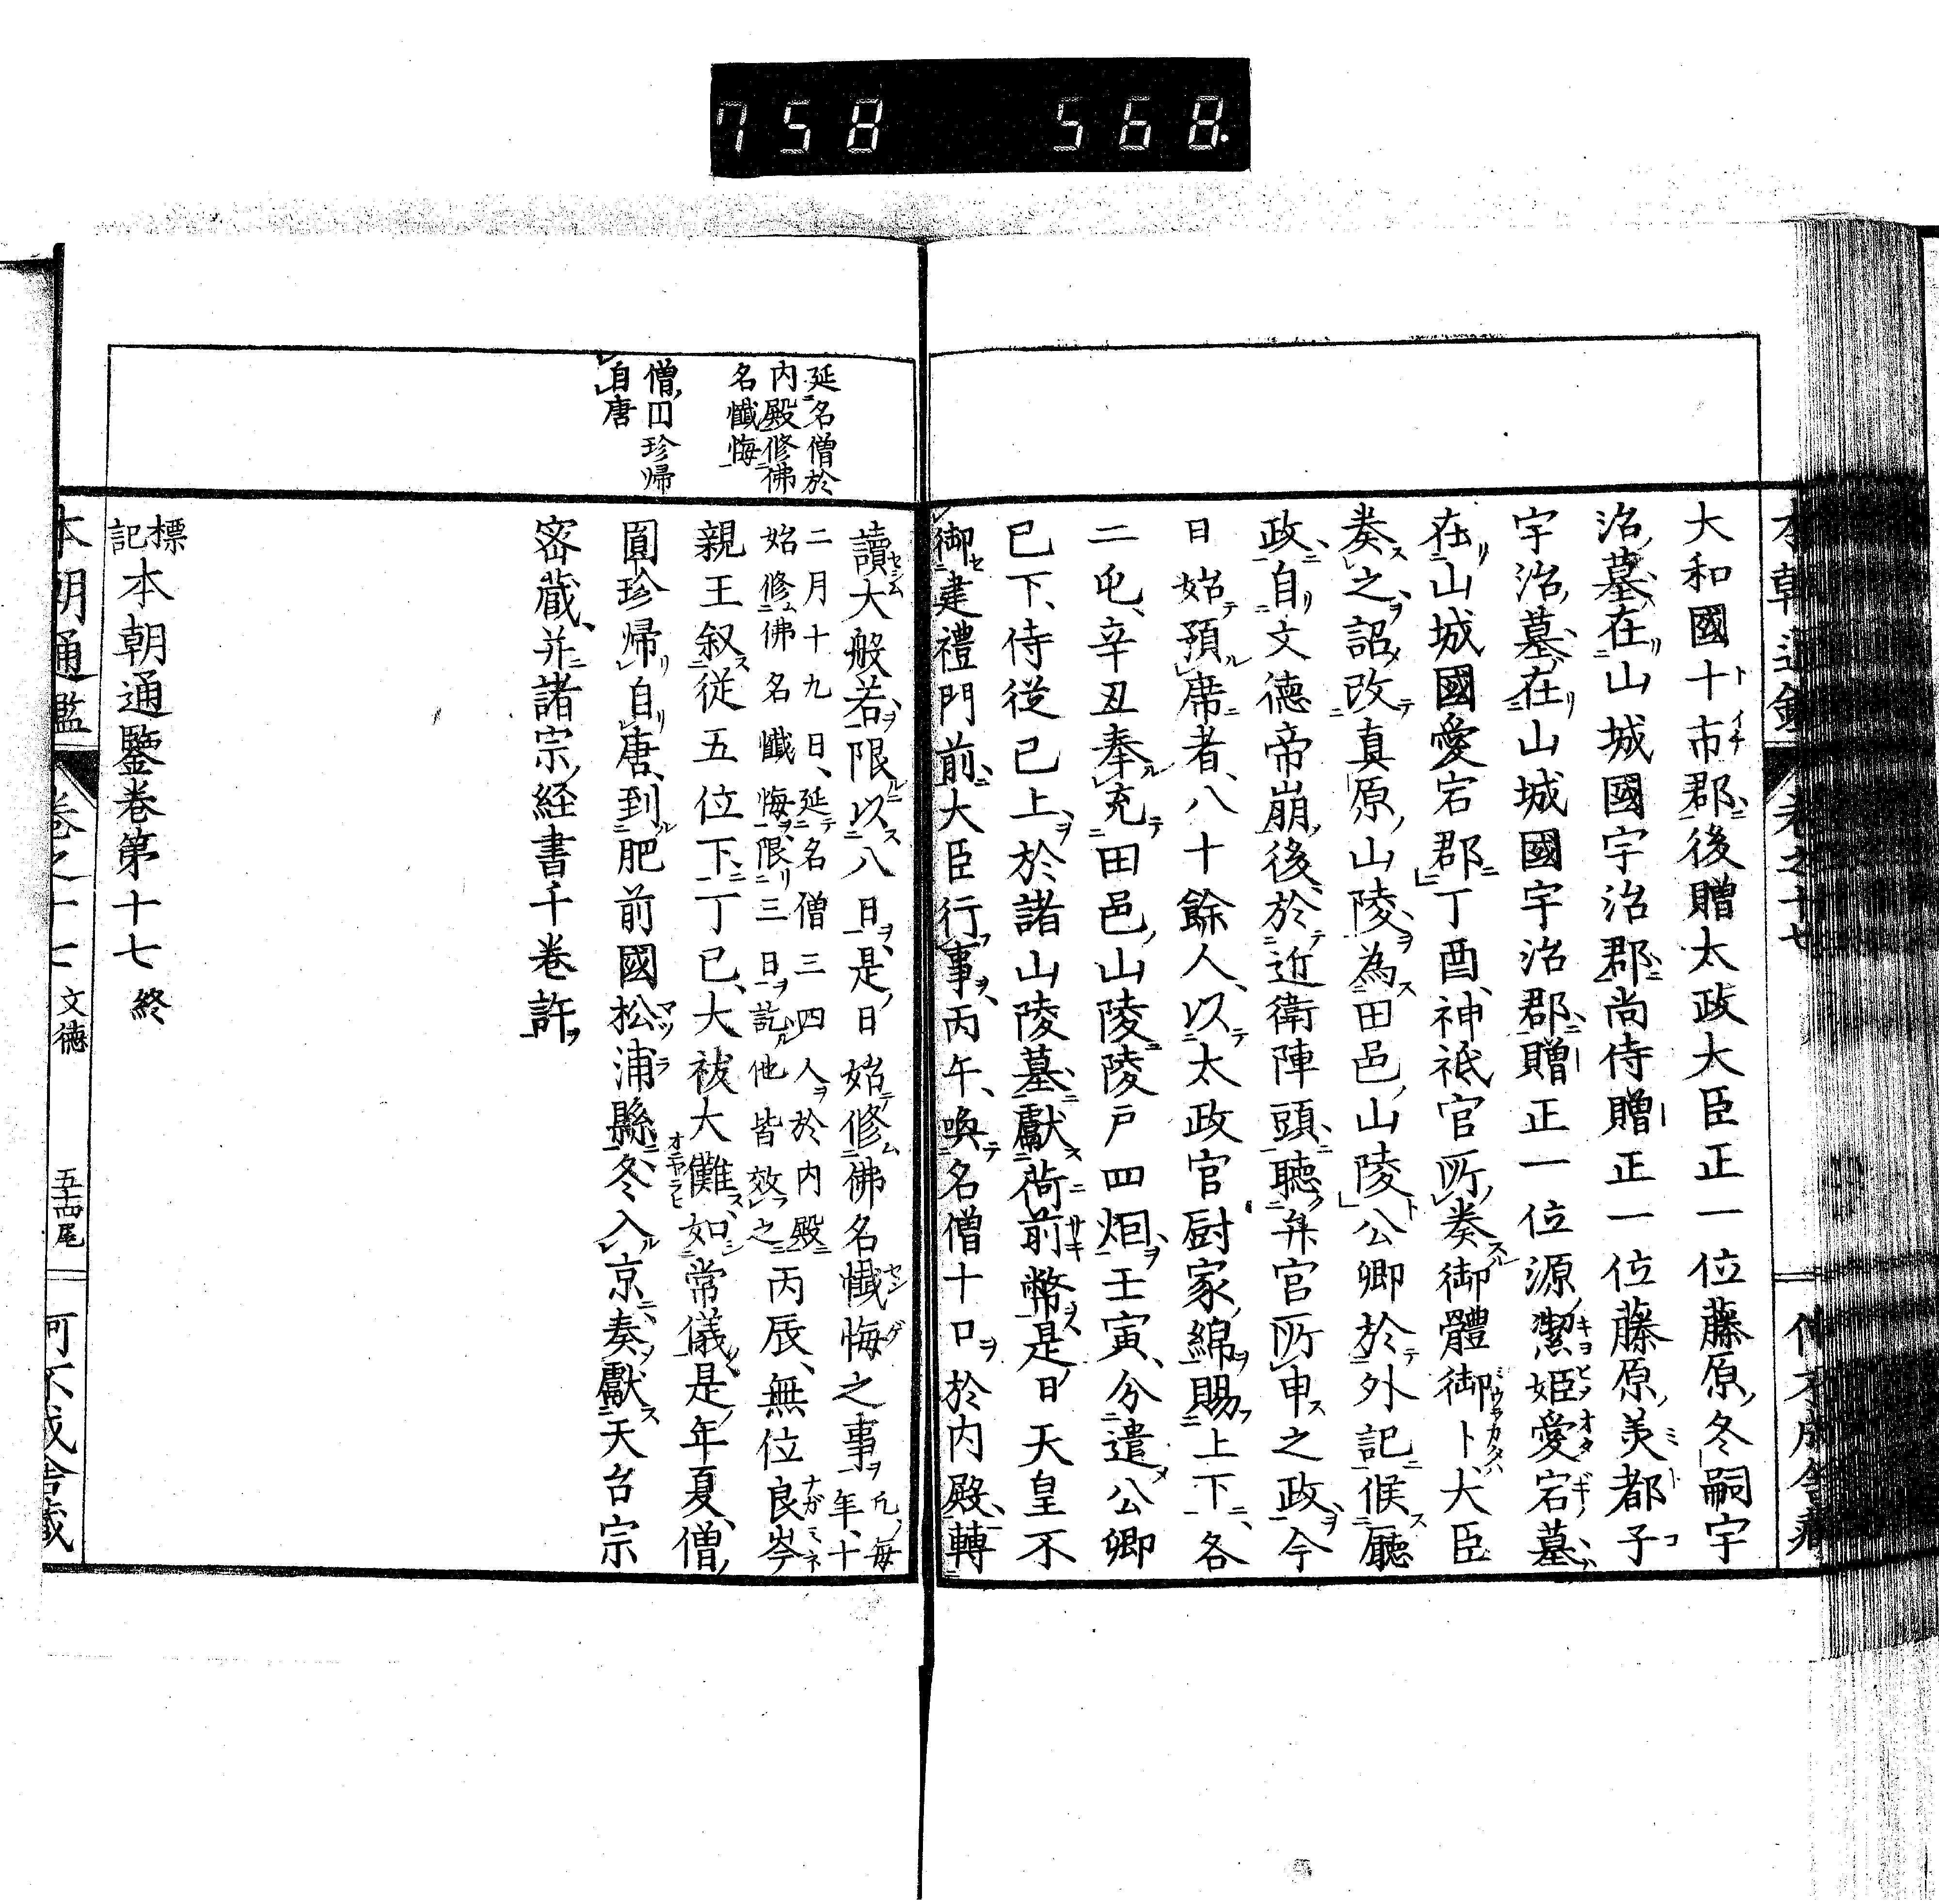 758 568.
大和國十市郡後贈太政大臣正一位藤原冬嗣宇
治墓在山城國宇治郡尚侍贈正一位藤原美都子
宇治墓在山城國宇治郡贈正一位源潔姫愛宕墓
在山城國愛宕郡丁酉神祇官所奏御體御卜大臣
奏之詔改真原山陵為田邑山陵公卿於外記候廳
政自文德帝崩後於近衛陣頭聽弁官所申之政今
日始預席者八十餘人以太政官厨家綿賜上下各
二屯辛丑奉充田邑山陵陵戸四烟壬寅分遣公卿
已下侍從已上於諸山陵墓獻荷前幣是日天皇不
御建禮門前大臣行事丙午喚名僧十口於内殿轉
延名僧於
内殿修佛
名懺悔
僧円珍帰
自唐
讀大般若限以八日是日始修佛名懺悔之事年凡毎十
二月十九日延名僧三四人於内殿
始修佛名懺悔限三日訖他皆效之丙辰無位良岑
親王叙從五位下丁巳大祓大儺如常儀是年夏僧
圓珍帰自唐到肥前國松浦縣冬入京奏獻天台宗
密蔵并諸宗経書千卷許
標記本朝通鑒卷第十七終
本朝通鑑 卷之十七 文德 五十四尾